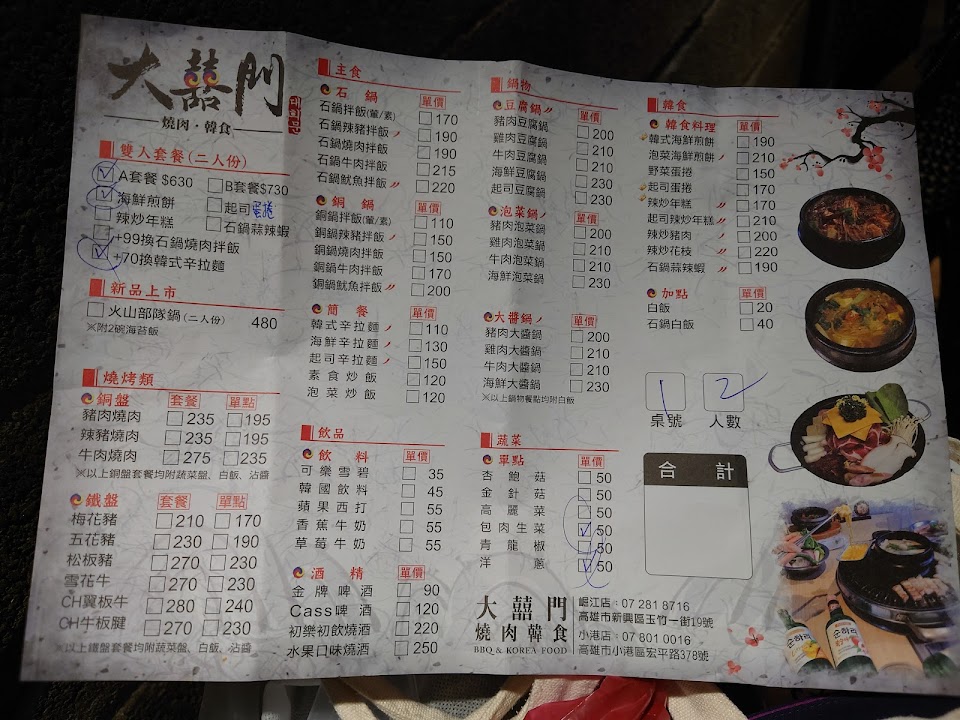 大囍門
대희문
燒肉・韓食
雙人套餐(二人份)
A套餐 $630 B套餐$730
海鮮煎餅 起司蛋捲
辣炒年糕 石鍋蒜辣蝦
+99換石鍋燒肉拌飯
+70換韓式辛拉麵
新品上市
火山部隊鍋(二人份) 480
※附2碗海苔飯
燒烤類
銅盤 套餐 單點
豬肉燒肉 235 195
辣豬燒肉 235 195
牛肉燒肉 275 235
※以上銅盤套餐均附蔬菜盤、白飯、沾醬
鐵盤 套餐 單點
梅花豬 210 170
五花豬 230 190
松板豬 270 230
雪花牛 270 230
CH翼板牛 280 240
CH牛板腱 270 230
※以上鐵盤套餐均附蔬菜盤、白飯、沾醬
主食
石鍋 單價
石鍋拌飯(葷/素) 170
石鍋辣豬拌飯 190
石鍋燒肉拌飯 190
石鍋牛肉拌飯 215
石鍋魷魚拌飯 220
銅鍋
銅鍋拌飯(葷/素) 110
銅鍋辣豬拌飯 150
銅鍋燒肉拌飯 150
銅鍋牛肉拌飯 170
銅鍋魷魚拌飯 200
簡餐 單價
韓式辛拉麵 110
海鮮辛拉麵 130
起司辛拉麵 150
素食炒飯 120
泡菜炒飯 120
飲品
飲料 單價
可樂雪碧 35
韓國飲料 45
蘋果西打 55
香蕉牛奶 55
草莓牛奶 55
酒精 單價
金牌啤酒 90
Cass啤酒 120
初樂初飲燒酒 220
水果口味燒酒 250
鍋物
豆腐鍋 單價
豬肉豆腐鍋 200
雞肉豆腐鍋 210
牛肉豆腐鍋 210
海鮮豆腐鍋 230
起司豆腐鍋 230
泡菜鍋 單價
豬肉泡菜鍋 200
雞肉泡菜鍋 210
牛肉泡菜鍋 210
海鮮泡菜鍋 230
大醬鍋 單價
豬肉大醬鍋 200
雞肉大醬鍋 210
牛肉大醬鍋 210
海鮮大醬鍋 230
※以上鍋物餐點均附白飯
蔬菜
單點 單價
杏鮑菇 50
金針菇 50
高麗菜 50
包肉生菜 50
青龍椒 50
洋蔥 50
韓食
韓食料理 單價
韓式海鮮煎餅 190
泡菜海鮮煎餅 210
野菜蛋捲 150
起司蛋捲 170
辣炒年糕 170
起司辣炒年糕 210
辣炒豬肉 200
辣炒花枝 220
石鍋蒜辣蝦 190
加點 單價
白飯 20
石鍋白飯 40
1 2
桌號 人數
合計
大囍門
燒肉韓食
BBQ & KOREA FOOD
崛江店:07 281 8716
高雄市新興區玉竹一街19號
小港店:07 801 0016
高雄市小港區宏平路378號
순하리
순하리